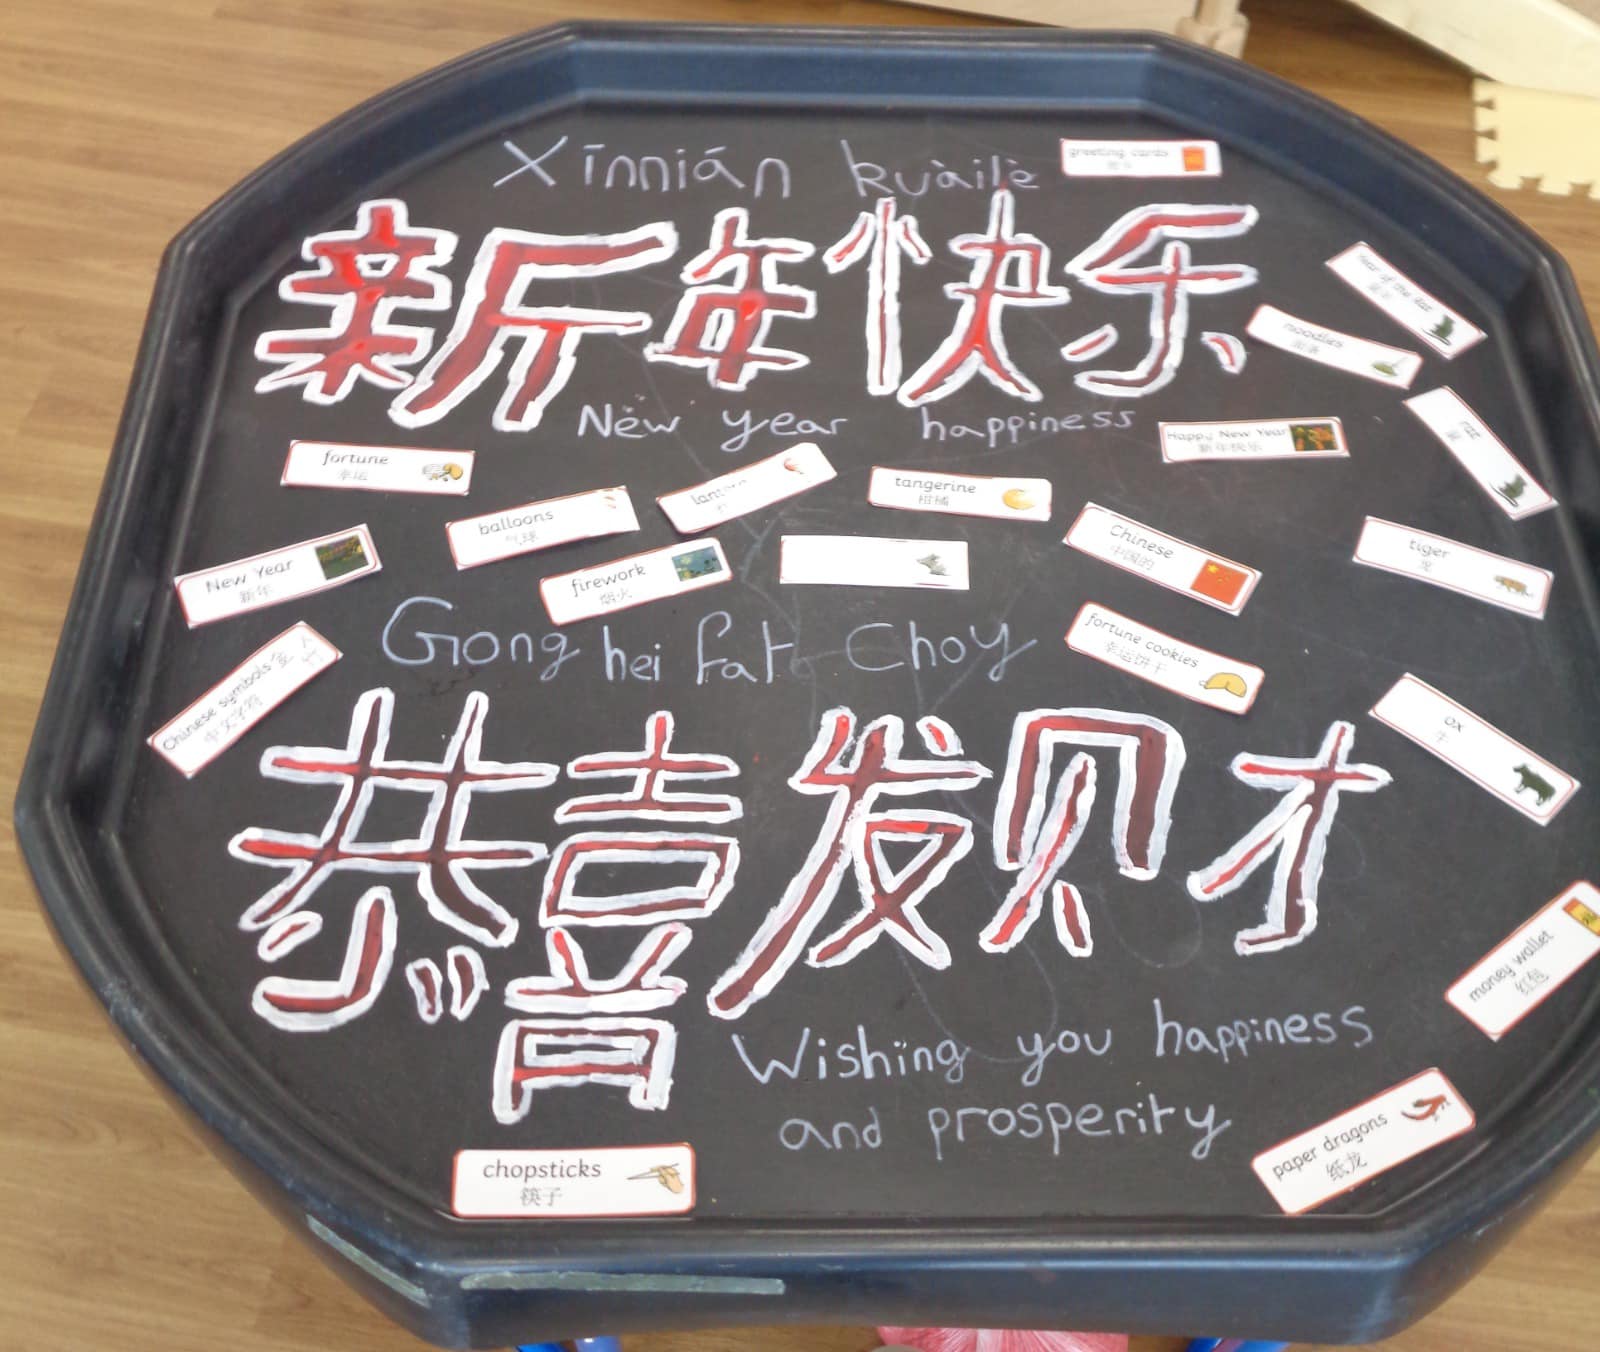 Xīnnián kuàilè
greeting cards
新年快乐
Year of the Rat
noodles
New year happiness
Happy New Year
新年快乐
rat
fortune
幸运
balloons
气球
tangerine
柑橘
Chinese
中国的
tiger
New Year
新年
firework
烟火
Gong hei fat Choy
fortune cookies
幸运饼干
Chinese symbols
中文字符
ox
牛
恭喜发财
money wallet
红包
Wishing you happiness
and prosperity
paper dragons
纸龙
chopsticks
筷子